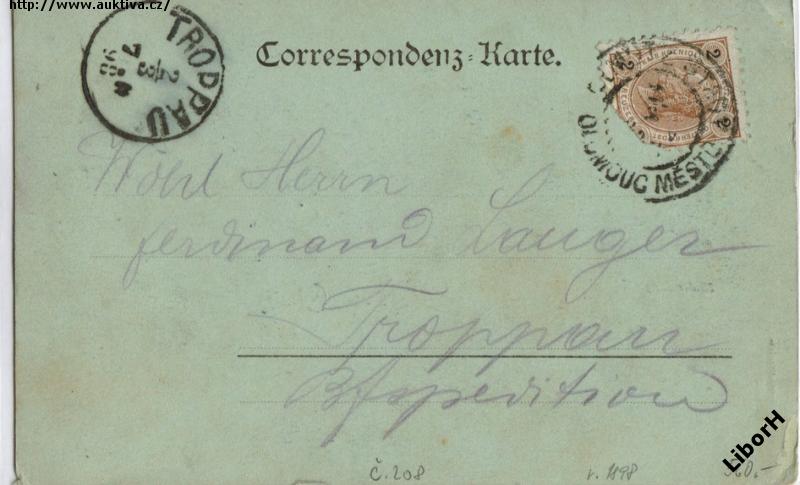 http://www.auktiva.cz/
TROPPAU
Correspondenz-Karte.
2 2
OLOMOUC MĚSTO
Wohl Herrn
Ferdinand Langer
Troppau
Bfspedition
č.208
r. 1898
LiborH